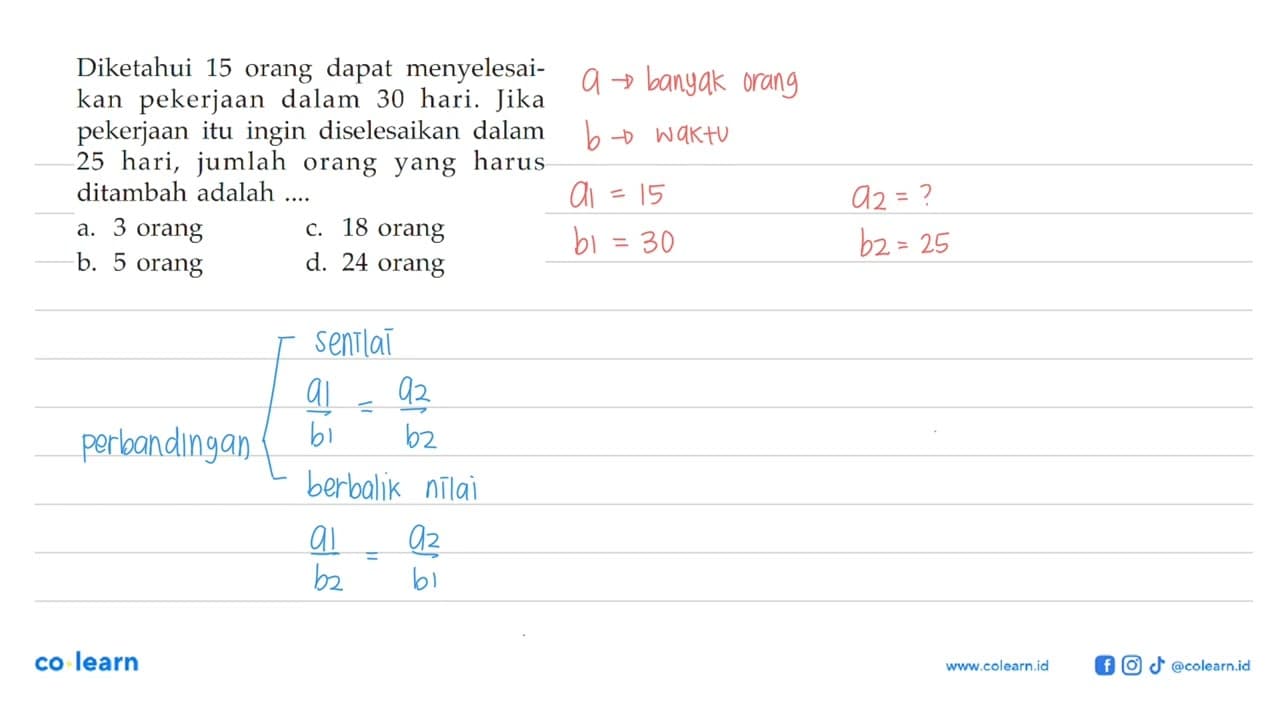 Diketahui 15 orang dapat menyelesai-
kan pekerjaan dalam 30 hari. Jika
pekerjaan itu ingin diselesaikan dalam
25 hari, jumlah orang yang harus
ditambah adalah ....
a. 3 orang c. 18 orang
b. 5 orang d. 24 orang
a → banyak orang
b → waktu
a1 = 15 a2 = ?
b1 = 30 b2 = 25
perbandingan
senilai
a1/b1 = a2/b2
berbalik nilai
a1/b2 = a2/b1
co learn
www.colearn.id
@colearn.id